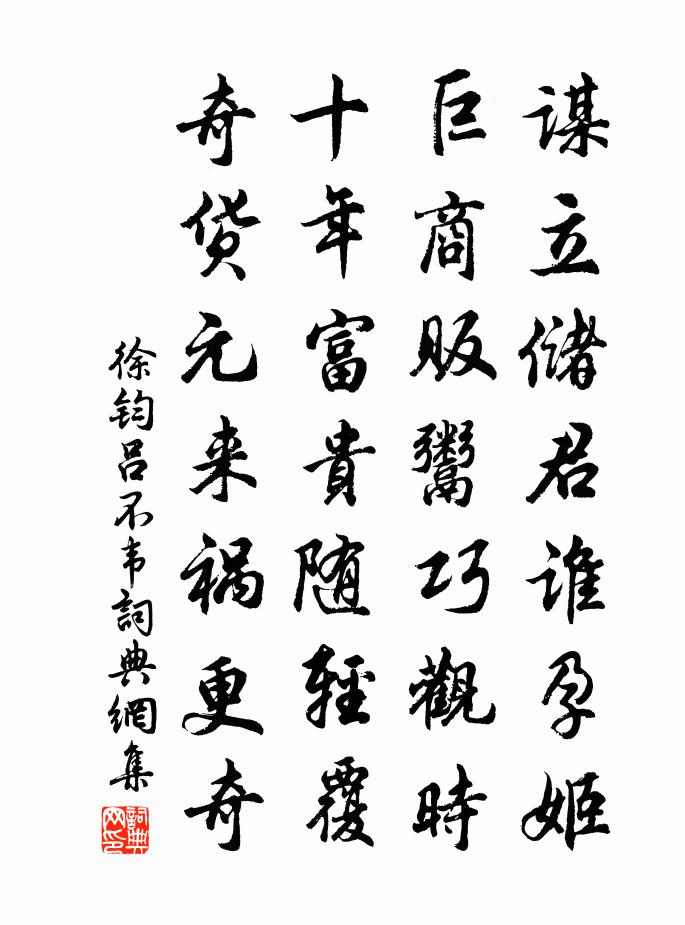 謀立儲君誰孕姬
巨商販鬻巧觀時
十年富貴随輕覆
奇货元来祸更奇
徐钧吕不韦詞典網集
詞典网印